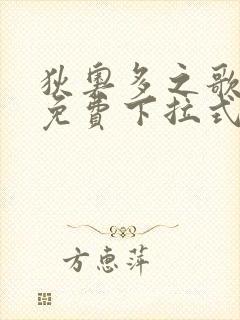 狄奧多之歌
免費下拉式
方惠萍